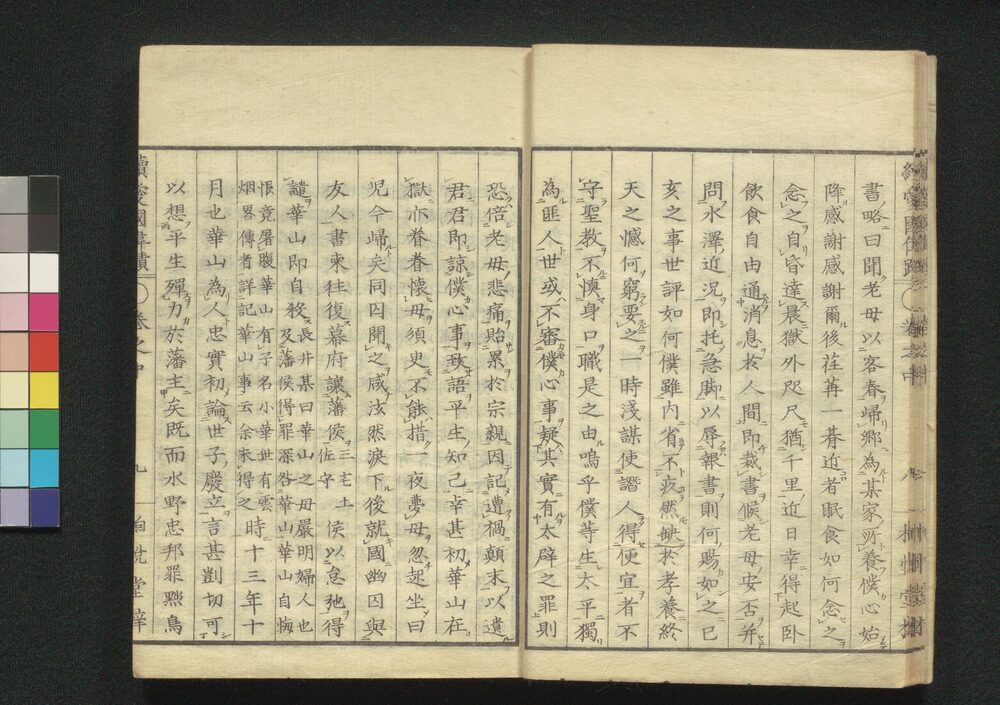 書略曰聞老母以客春歸鄉為某家所養僕心始
降感謝感謝爾後荏苒一朞近者眠食如何念之
念之自昏達晨獄外咫尺猶千里近日幸得起臥
飲食自由通消息於人間即裁書候老母安否并
問水澤近況即托急脚以辱報書則何賜如之巳
亥之事世評如何僕雖內省不疚然缺於孝養終
天之憾何窮要之一時淺謀使譖人得便宜者不
守聖教不慎身口職是之由嗚乎僕等生太平獨
為匪人世或不審僕心事疑其實有太辟之罪則
恐倍老母悲痛貽累於宗親因記遭禍顛末以遺
君君即諒僕心事致語平生知己幸甚初華山在
獄亦眷眷懷母須史不能措一夜夢母忽起坐曰
児今歸矣同囚聞之咸泫然淚下後就國幽囚與
友人書柬往復幕府讓藩侯三宅土佐守侯以怠弛得
譴華山即自殺長井某曰華山之母嚴明婦人也及藩侯得罪深咎華山華山自悔
恨竟屠腹華山有子名小華世有雲烟畧傳者詳記華山事云余未得之時十三年十
月也華山為人忠實初論世子廢立言甚剴切可
以想平生殫力於藩主矣既而水野忠邦罪黜鳥
續愛國偉績
卷之中
九